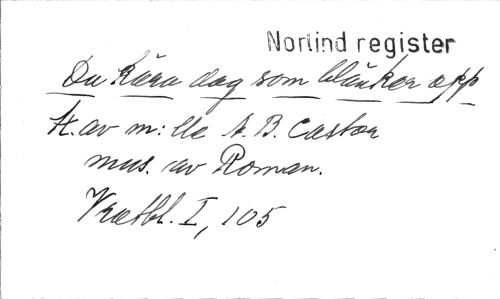 Norlind register
Du kära dag som blänker opp
t. av m:lle A. B. Castor
mus. av Roman.
Vretbl. I, 105